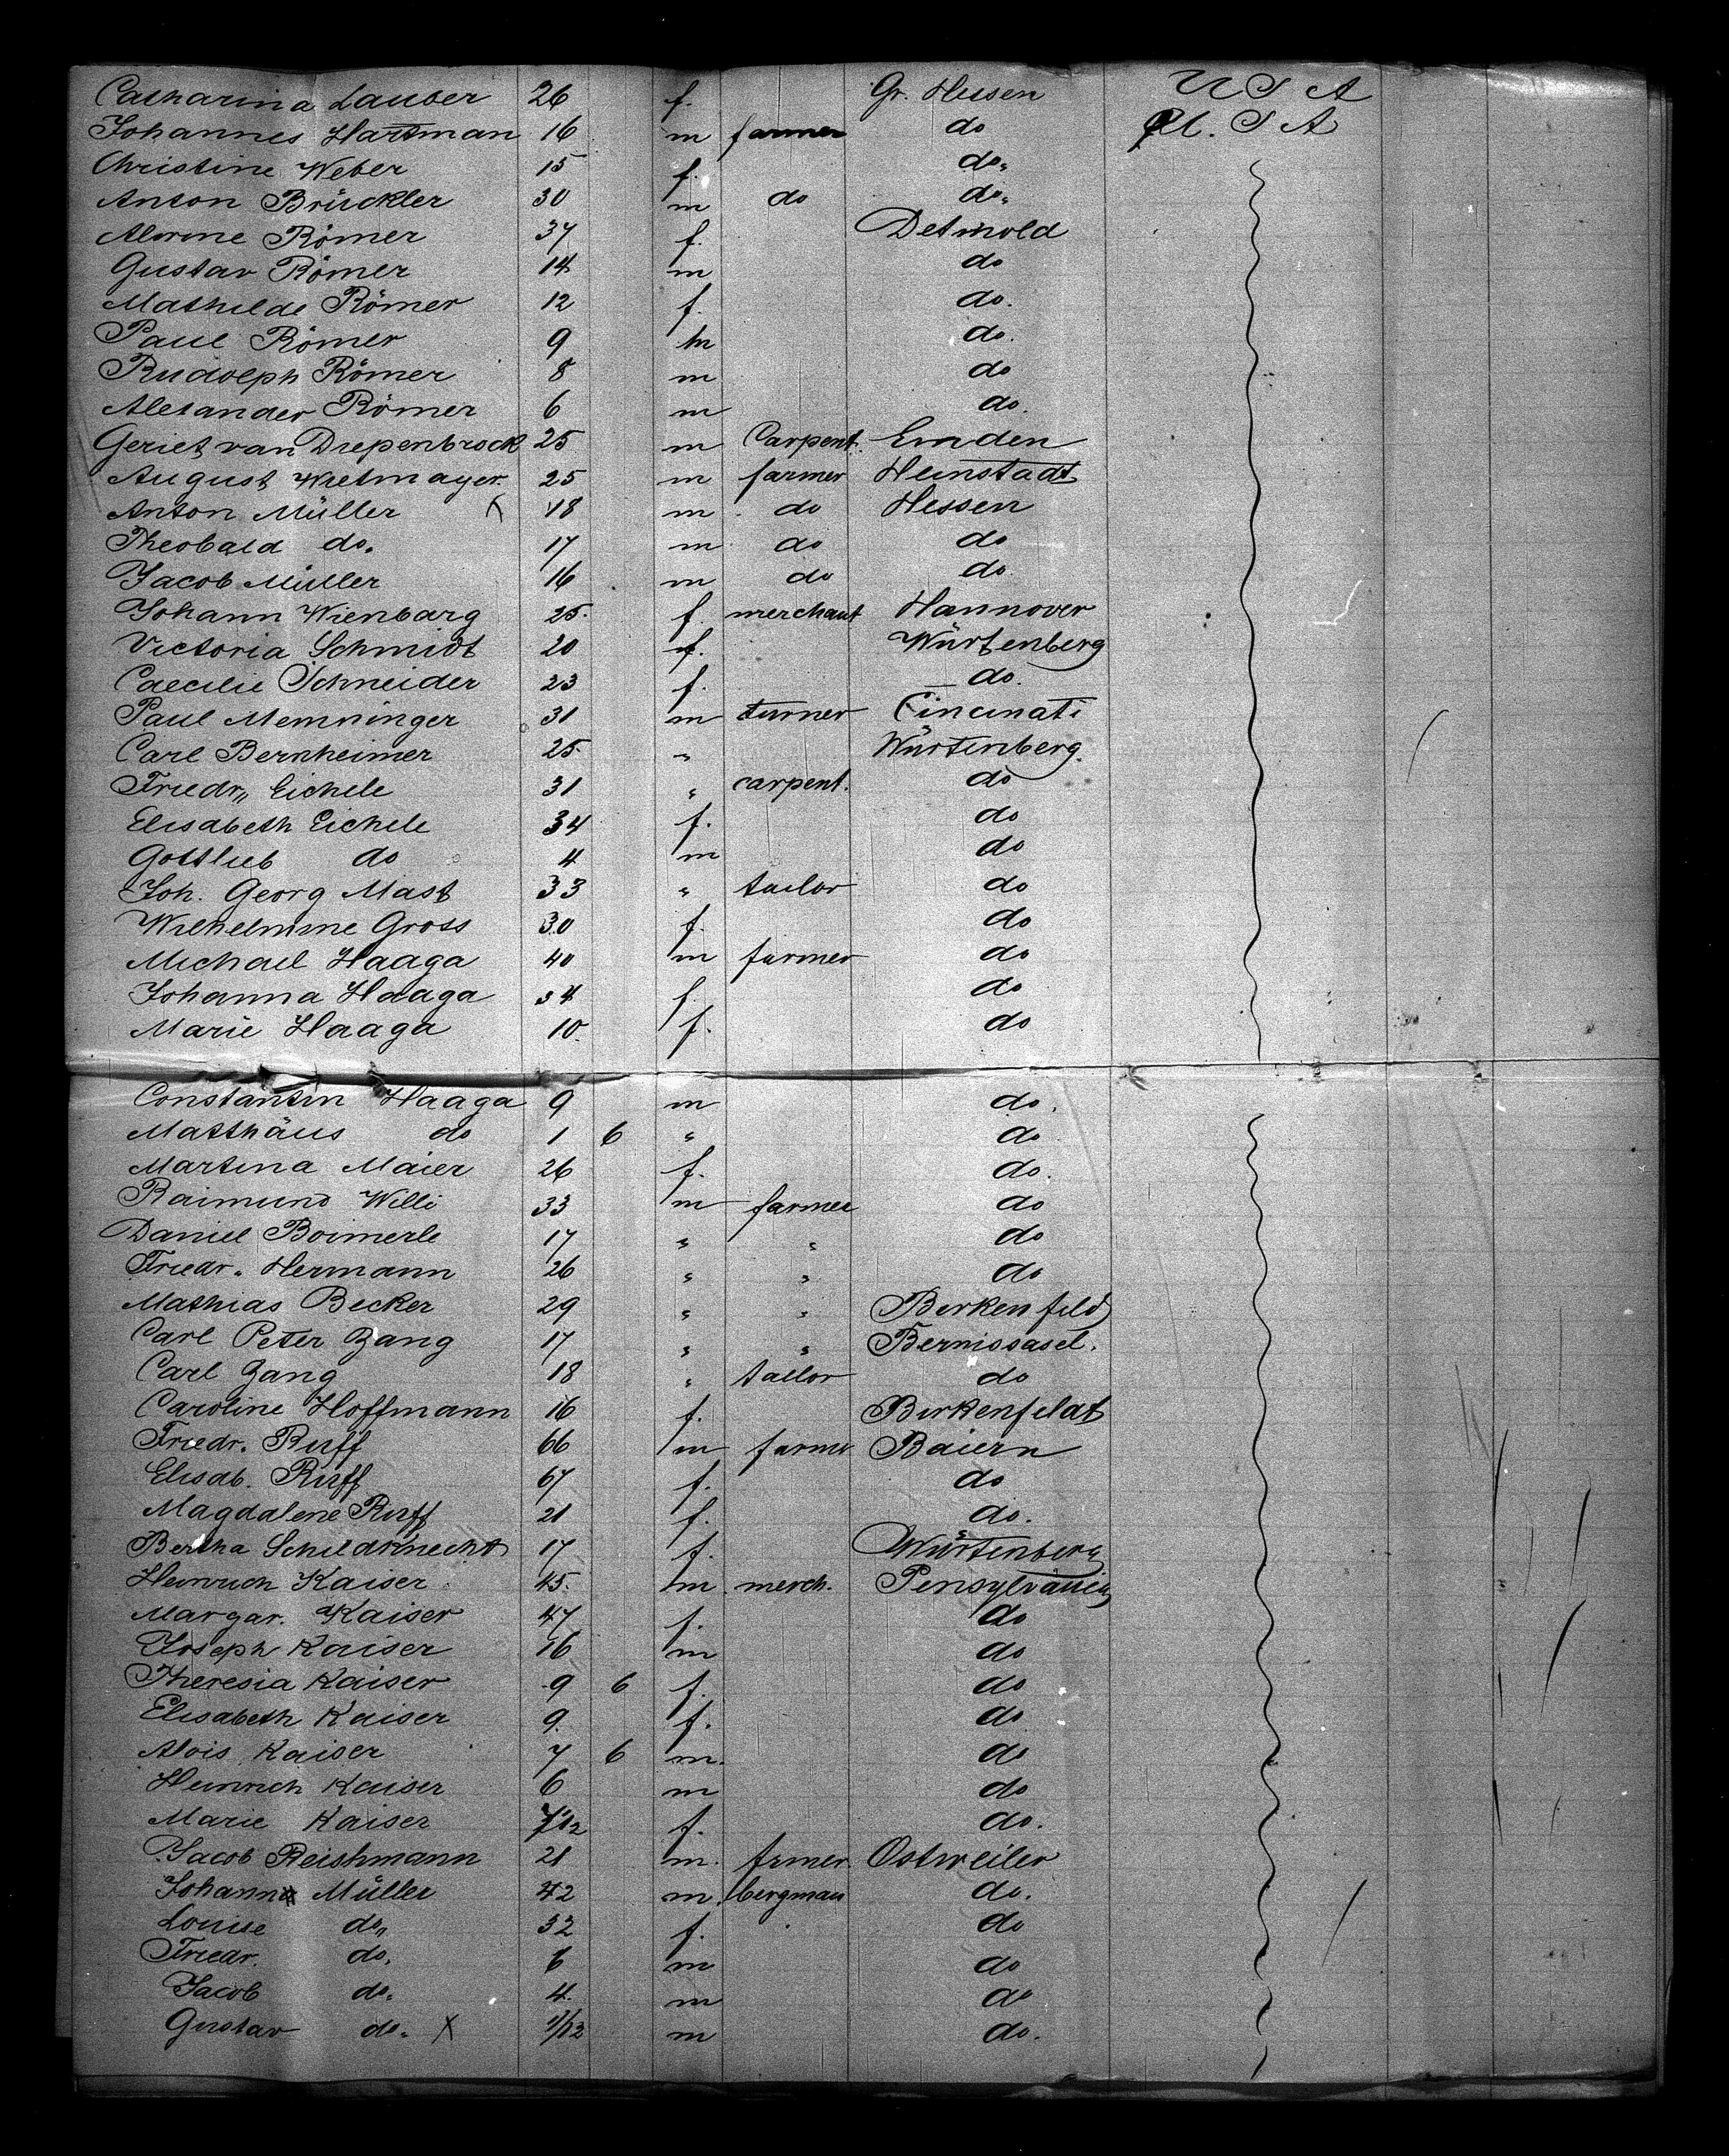 Catharina Lauber 26 f. Gr. Hessen U S A
Johannes Hartman 16 m farmer do U. S A
Christine Weber 15 f. do.
Anton Brückler 30 m do do.
Alwine Römer 37 f. Detmold
Gustav Römer 14 m do
Mathilde Römer 12 f. do.
Paul Römer 9 m do.
Rudolph Römer 8 m do
Alexander Römer 6 m do.
Geriet van Diepenbrock 25 m Carpent. Emden
August Wietmayer 25 m farmer
Anton Müller x 18 m do Hessen
Theobald do. 17 m do do
Jacob Müller 16 m do do.
Johann Wienbarg 25. f. merchant Hannover
Victoria Schmidt 20 f. Würtenberg
Caecilie Schneider 23 f. do.
Paul Memninger 31 m turner Cincinati
Carl Bernheimer 25. " Würtenberg.
Friedr. Eichele 31 " carpent. do
Elisabeth Eichele 34 f. do
Gottlieb do 4 m do
Joh. Georg Mast 33 " tailor do
Wilhelmine Gross 30 f. do
Michael Haaga 40 m farmer do
Johanna Haaga 34 f. do
Marie Haaga 10. f. do
Constantin Haaga 9 m do.
Matthäus do 1 6 " do
Martina Maier 26 f. do.
Raimund Willi 33 m farmer do
Daniel Boimerle 17 " " do
Friedr. Hermann 26 " " do
Mathias Becker 29 " " Birkenfeld
Carl Peter Zang 17 " "
Carl Zang 18 " tailor do
Caroline Hoffmann 16 f. Birkenfeldt
Friedr. Ruff 66 m farmer Baiern
Elisab. Ruff 67 f. do
Magdalene Ruff 21 f. do.
Bertha Schildknecht 17 f. Würtenberg
Heinrich Kaiser 45. m merch. Pensylvania
Margar. Kaiser 47 f. do
Joseph Kaiser 16 m do
Theresia Kaiser 9 6 f. do
Elisabeth Kaiser 9. f. do
Alois Kaiser 7 6 m. do
Heinrich Kaiser 6 m do
Marie Kaiser 7/12 f. do.
Jacob Reishmann 21 m. frmer. Ostweiler
Johann Müller 42 m. bergman do.
Louise do. 32 f. do
Friedr. do. 6 m do
Jacob do. 4. m do
Gustav do. x 1/12 m do.